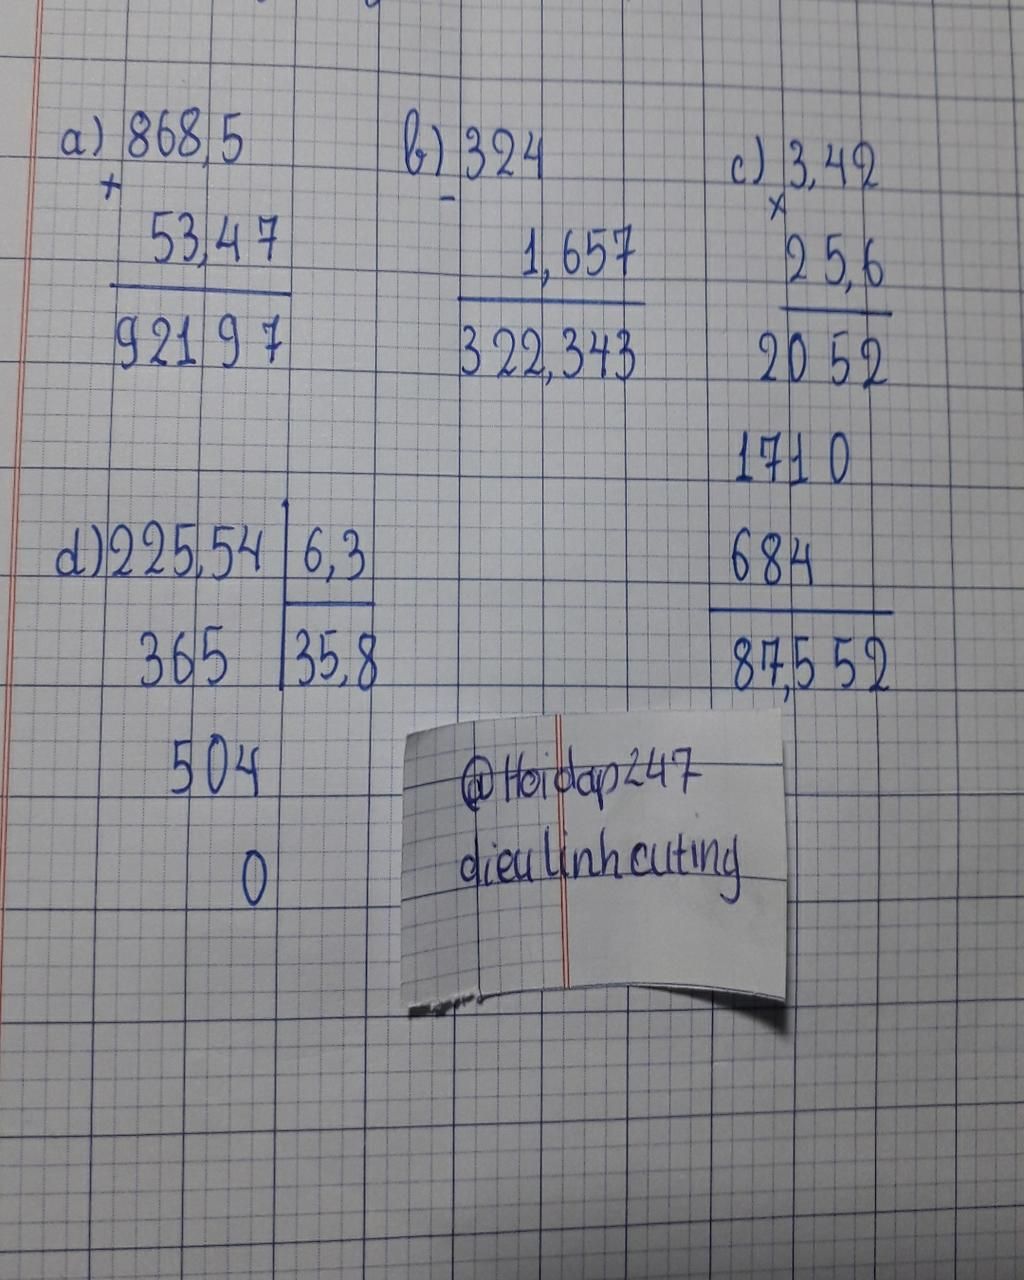 a) 868,5
+
53,47
921 97
b) 324
-
1,657
322,343
c) 3,42
x
25,6
2052
1710
684
87,552
d) 225,54 6,3
365 35,8
504
0
@Hoidap247
dieulinhcuting